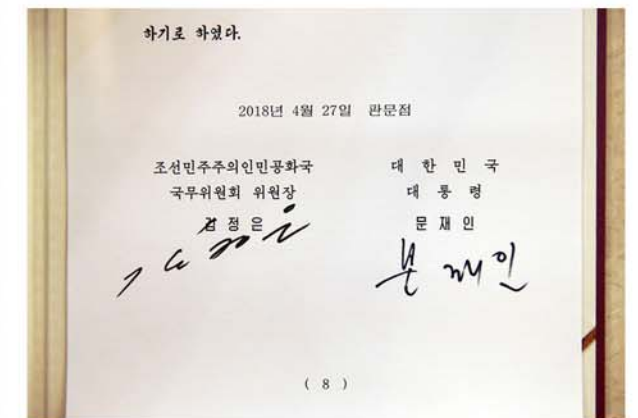 하기로 하였다.
2018년 4월 27일 판문점
조선민주주의인민공화국
국무위원회 위원장
김정은
대 한 민 국
대 통 령
문 재 인
문재인
( 8 )